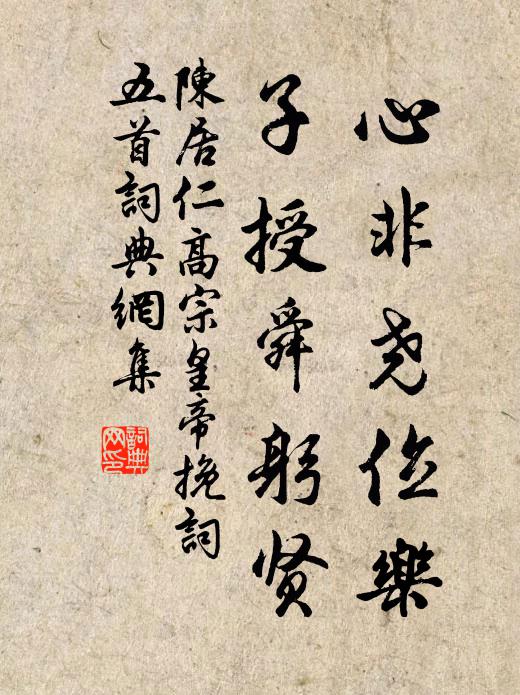 心非尧位樂
子授舜躬贤
陳居仁高宗皇帝挽詞
五首詞典網集
詞典网印